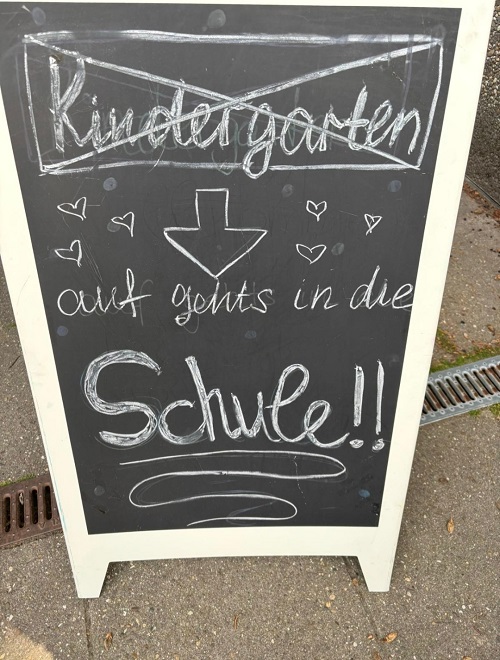 Kindergarten
auf gehts in die
Schule!!